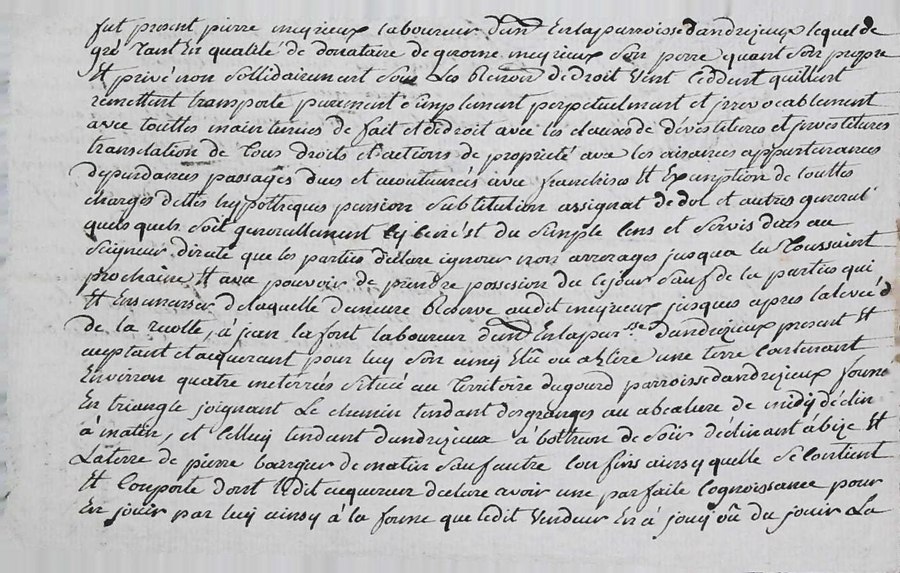 fut present pierre meyrieux laboureur d'und En la parroisse d'andrejeux lequel de
gré Tant En qualité de donataire de gerome meyrieux son pere quant son propre
et privé non sollidairement sous Les Renon de droit Vent Cedde et quillant
remettant transporte purement & simplement perpetuelmant et irrevocablement
avec touttes maintenues de fait et dedroit avec les clauses de dévestitures et jnvestitures
translation de tous droits et actions de propriété avec les aisances appartenances
dependances passages dues et acoutumés avec franchise et Exemption de touttes
charges dettes hypotheques pansion substitution assignat de dot et autres general
quels quels soit generallement exceptés du simple Cens et servis deus au
seigneur directe que les parties declare ignorer non arrerages jusqua la Toussaint
prochaine et avec pouvoir de prendre possesion du cejour sauf de la parties qui
et Ensemenser de laquelle demeure Reservé audit meyrieux jusques apres la levée d
de la recolte, à jean la font laboureur d'und En la par.sse d'andrejeux present et
acceptant et acquerant pour luy son amy Elu ou a Elire une terre Contenant
Environ quatre meterrés située au Territoire dugourd parroisse d'andrejeux forme
En triangle joignant Le chemin tendant des granges au de midy déclin
à matin, et Celluy tendant d'andrejeux à bothron de soir declinant à bize et
La terre de pierre de matin sauf autre confins ainsy quelle se Contient
et Comporte dont ledit acquereur declare avoir une parfaite Cognoissance pour
En jouir par luy ainsy à la forme que ledit Vendeur En à jouy ou du jouir La